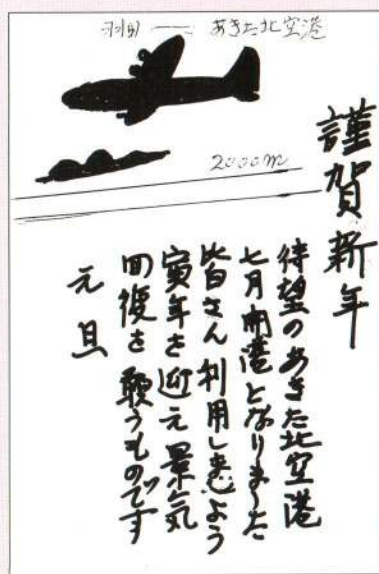 羽田 ── あきた北空港
2000m
謹賀新年
待望のあきた北空港
七月開港となりました
皆さん利用しませう
寅年を迎え景気
回復を願うものです
元旦